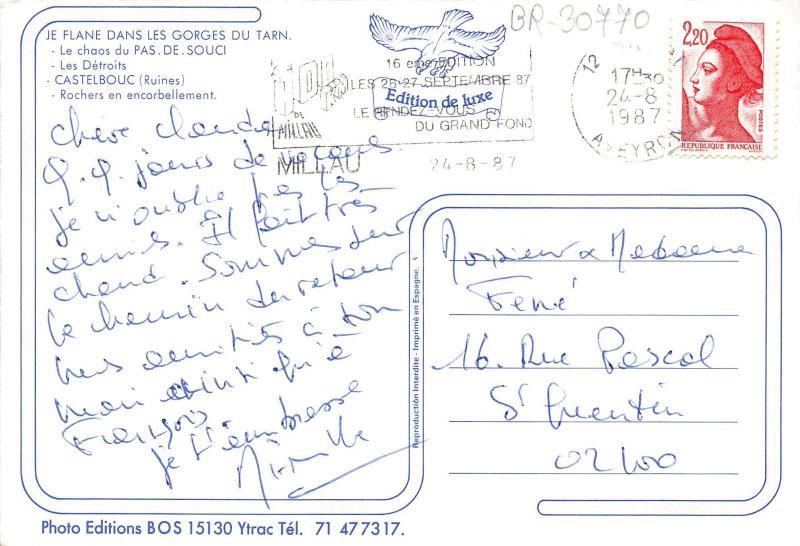 JE FLANE DANS LES GORGES DU TARN.
- Le chaos du PAS.DE.SOUCI
- Les Détroits
- CASTELBOUC (Ruines)
- Rochers en encorbellement.
BR-30770
16 eme EDITION
LES 26-27 SEPTEMBRE 87
LE RENDEZ-VOUS
DU GRAND FOND
DE
MILLAU
MILLAU
24-8-87
Edition de luxe
12
17H30
24-8
1987
AVEYRON
2,20
POSTES
REPUBLIQUE FRANCAISE
Chère Claude
q.q. jours de vacances
je n'oublie pas les
amis. Il fait très
chaud. Sommes sur
le chemin du retour
nos amitiés à ton
mari ainsi qu'à
François
je t'embrasse
Monsieur & Madame
Fené
16. Rue Pascal
St Quentin
02100
Reproduction Interdite - Imprimé en Espagne.
Photo Editions BOS 15130 Ytrac Tél. 71 477317.